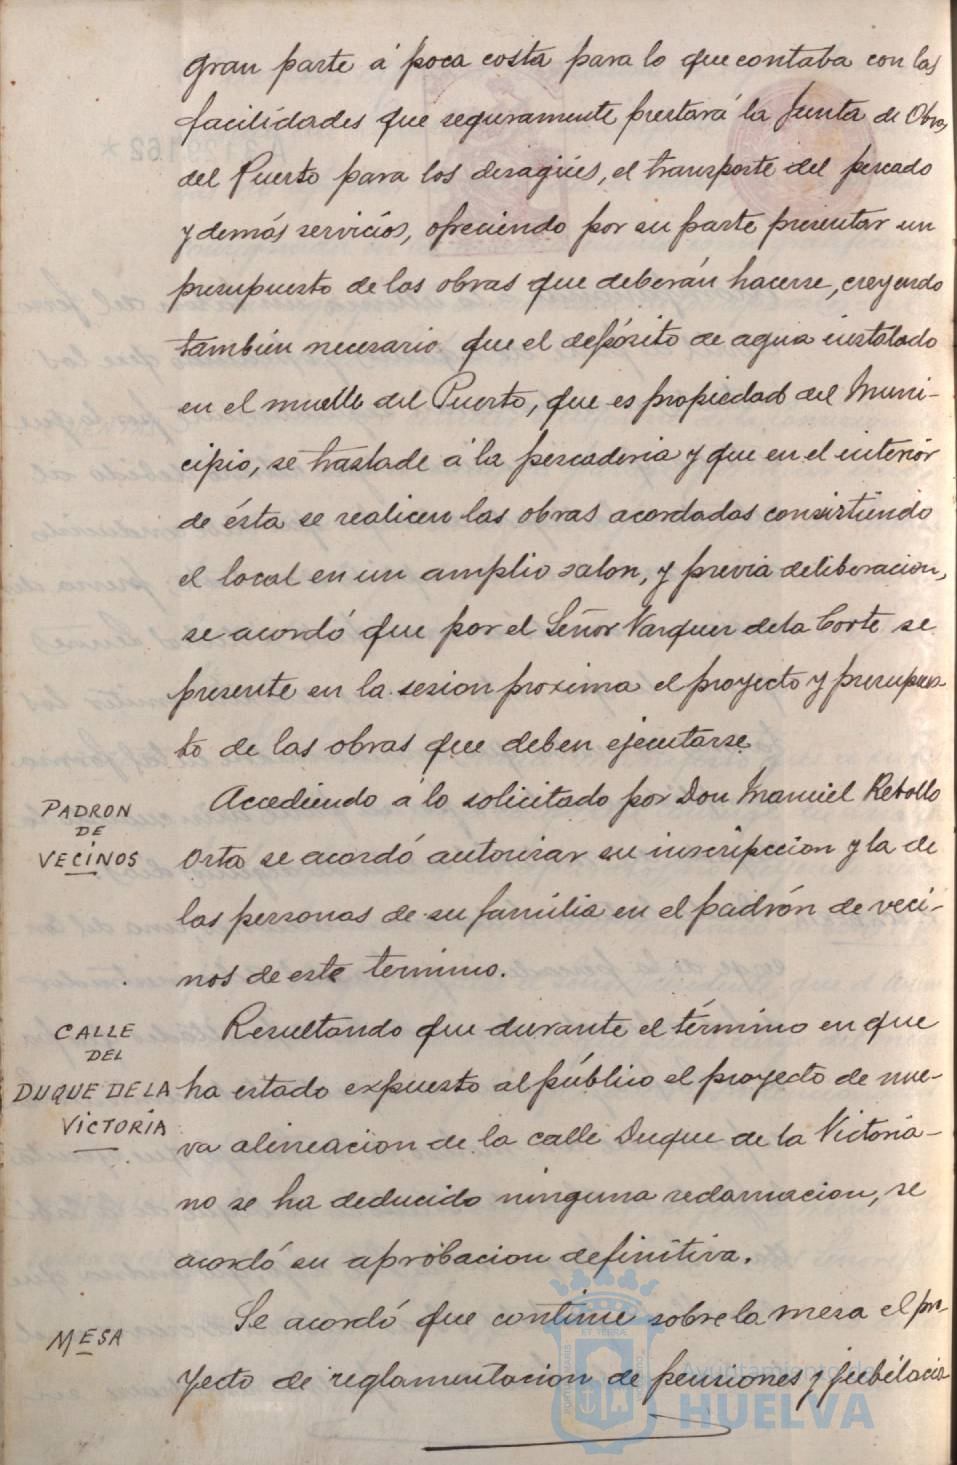 gran parte á poca costa para lo que contaba con las
facilidades que seguramente prestará la Junta de Obras
del Puerto para los desagües, el transporte del pescado
y demás servicios, ofreciendo por su parte presentar un
presupuesto de las obras que deberán hacerse, creyendo
tambien necesario que el depósito de agua instalado
en el muelle del Puerto, que es propiedad del Muni-
cipio, se traslade á la pescaderia y que en el interior
de ésta se realicen las obras acordadas consistiendo
el local en un amplio salon, y previa deliberacion,
se acordó que por el Señor Vazquez de la Corte se
presente en la sesion proxima el proyecto y presupues-
to de las obras que deben ejecutarse.
PADRON
DE
VECINOS
Accediendo á lo solicitado por Don Manuel Rebollo
Orta se acordó autorizar su inscripccion y la de
las personas de su familia en el padrón de veci-
nos de este termino.
CALLE
DEL
DUQUE DE LA
VICTORIA
Resultando que durante el término en que
ha estado expuesto al público el proyecto de nue-
va alineacion de la calle Duque de la Victoria-
no se ha deducido ninguna reclamacion, se
acordó su aprobacion definitiva.
MESA
Se acordó que continue sobre la mesa el pro-
yecto de reglamentacion de pensiones y jubilacio-
Ayuntamiento de
HUELVA